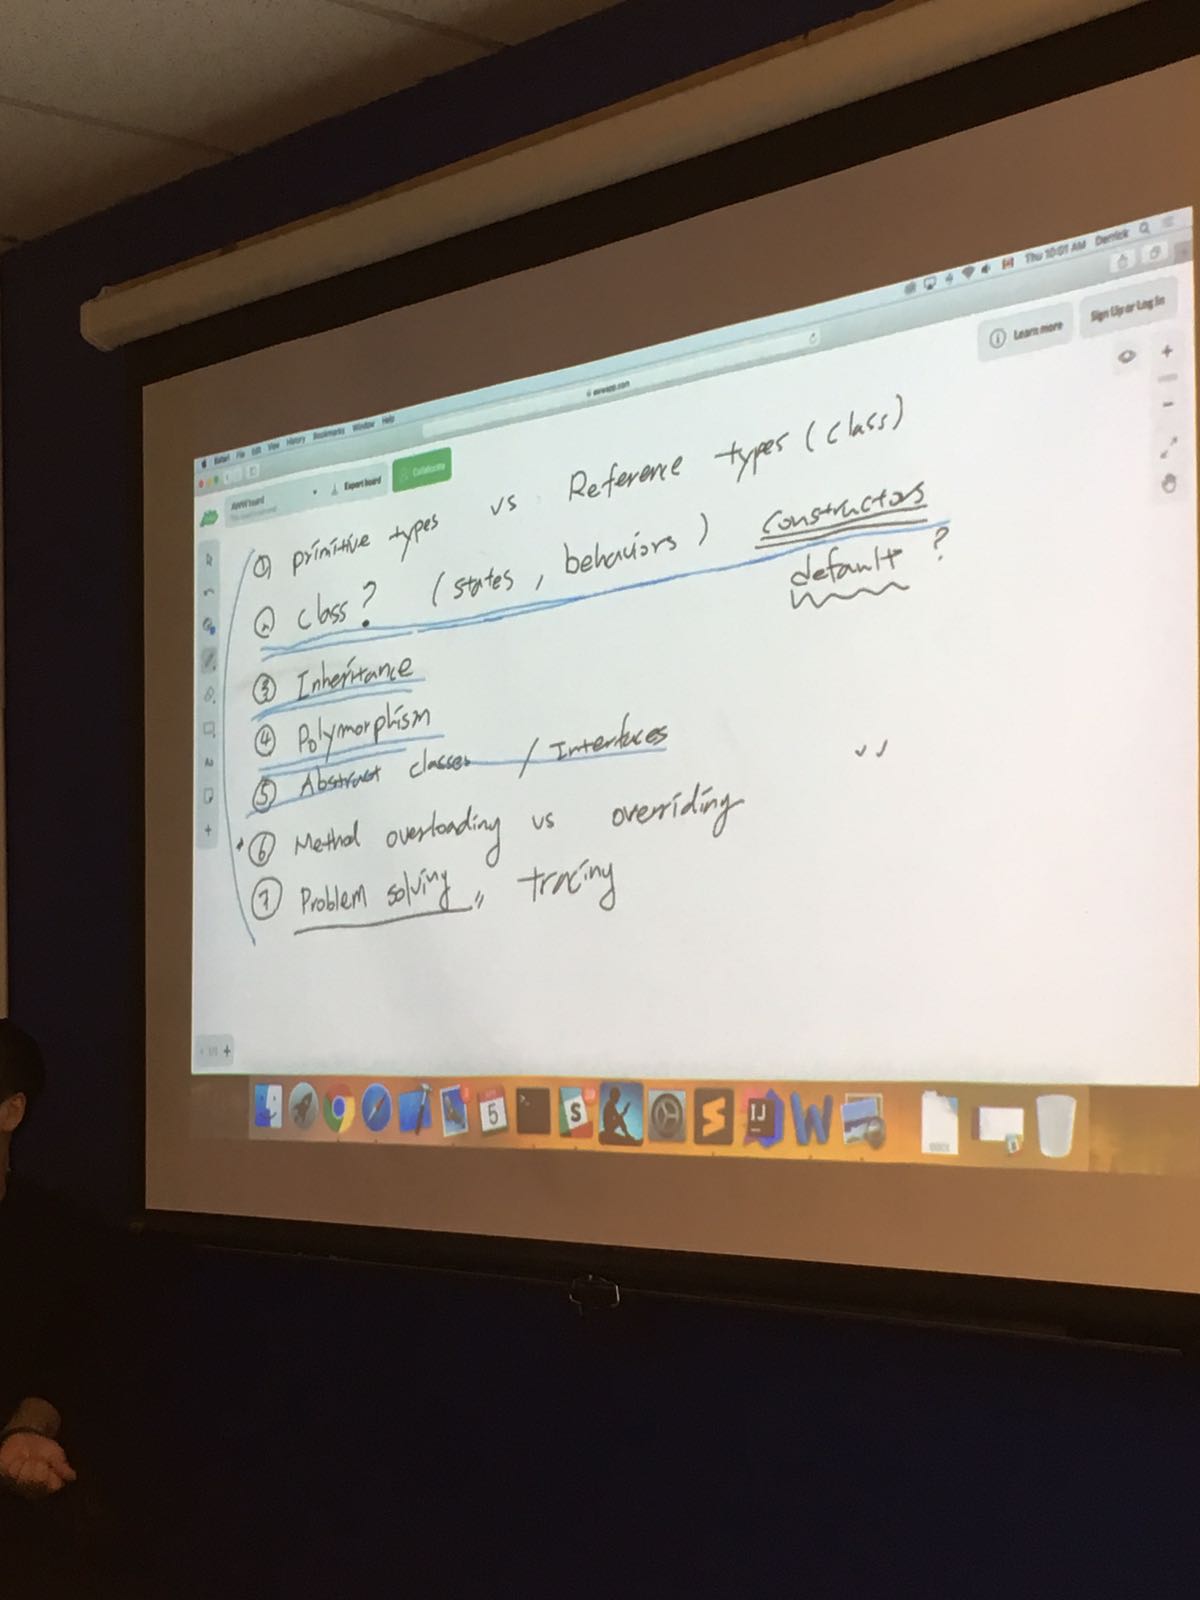 Safari File Edit View History Bookmarks Window Help
Thu 10:01 AM Derrick
awwapp.com
AWW board
Export board
Collaborate
Learn more
Sign Up or Log In
① primitive types vs Reference types (class)
② class? (states, behaviors) constructors
default?
③ Inheritance
④ Polymorphism
⑤ Abstract classes / Interfaces
⑥ Method overloading vs overriding
⑦ Problem solving, tracing
Aa
1/1
5
S
IJ
W
DOCX